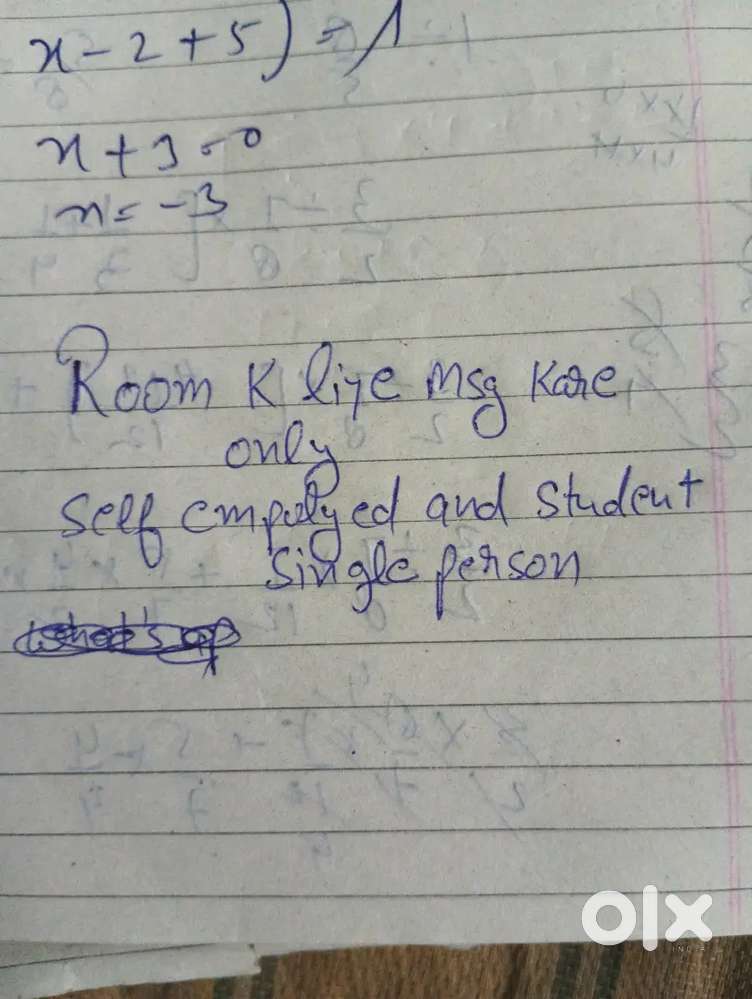 x - 2 + 5) = 1
x + 3 = 0
x = -3
Room K liye Msg Kare
only
Self empolyed and Student
Single person
olx
INDIA